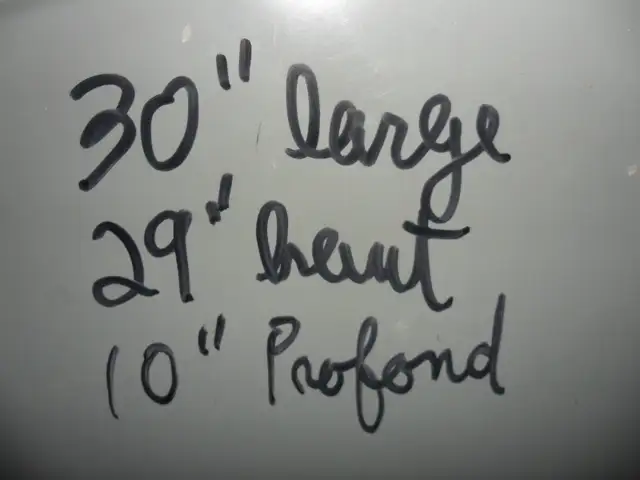 30" large
29" haut
10" Profond